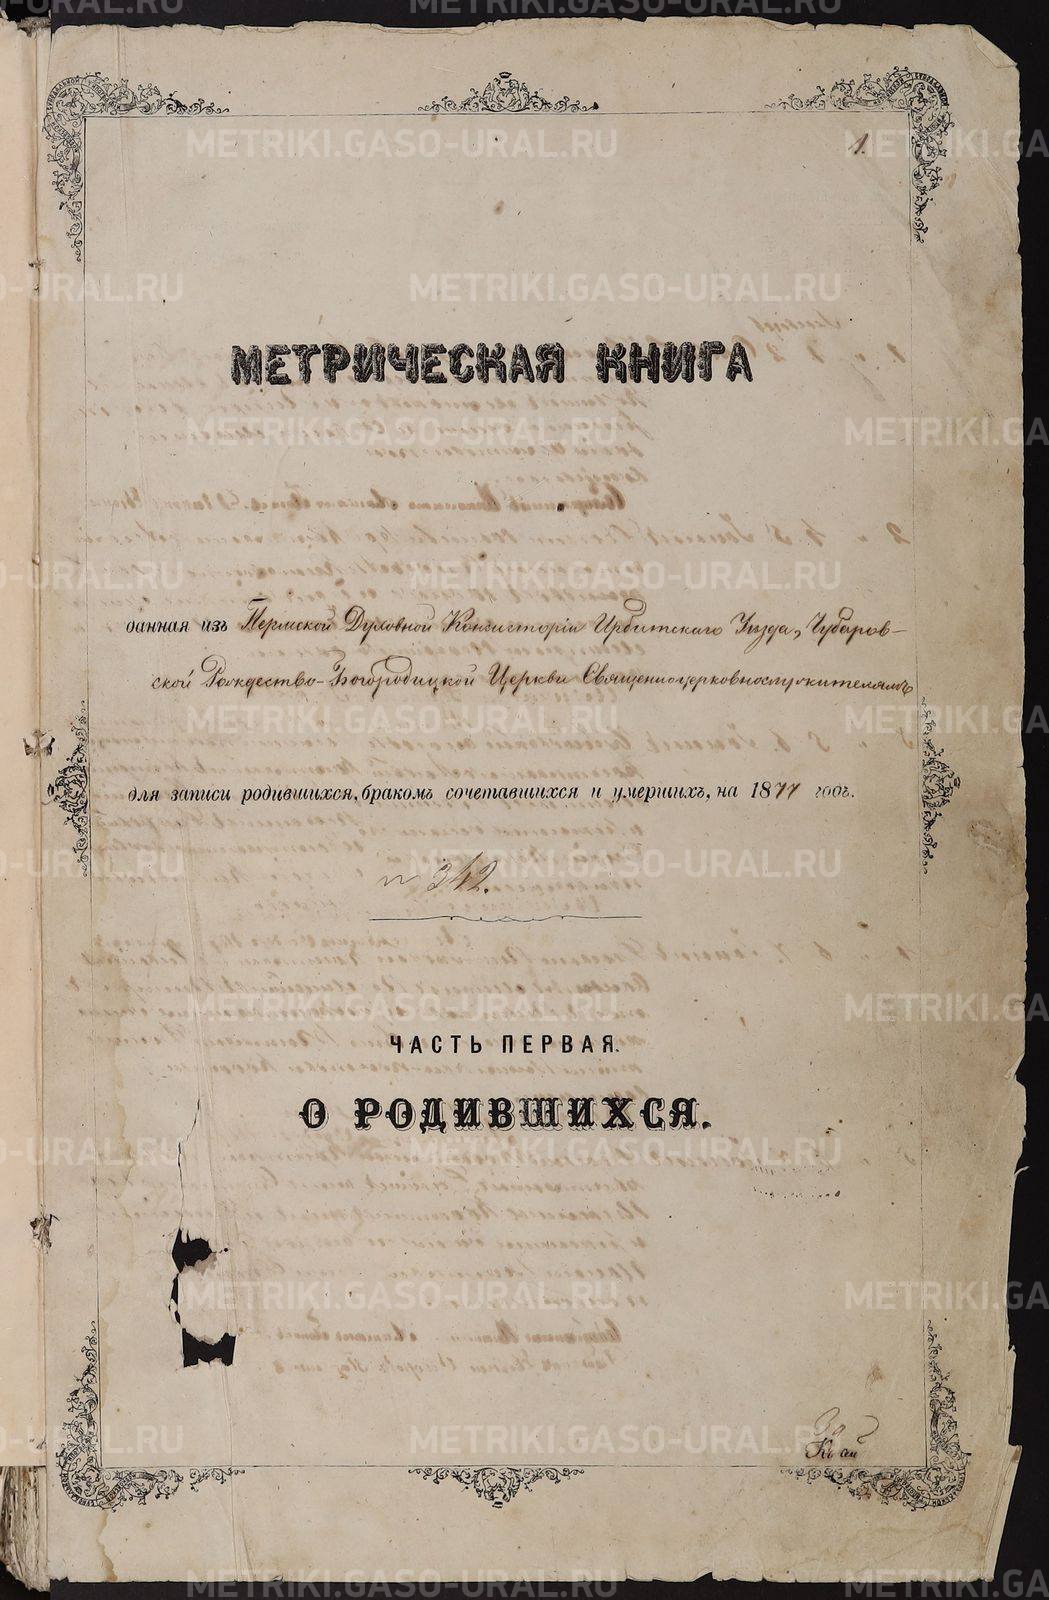 1.
МЕТРИЧЕСКАЯ КНИГА
данная изъ Пермской Духовной Консисторіи Ирбитскаго Уѣзда, Чубаров-
ской Рождество-Богородицкой Церкви Священноцерковнослужителямъ
для записи родившихся, бракомъ сочетавшихся и умершихъ, на 1877 годъ.
№ 342.
ЧАСТЬ ПЕРВАЯ.
О РОДИВШИХСЯ.
METRIKI.GASO-URAL.RU